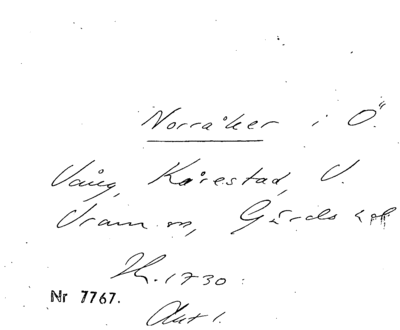 Norråker i Ö.
Vång, Kårestad, V.
Vram m, Gärds hd
Kr. 1730.
Nr 7767.
Akt 1.